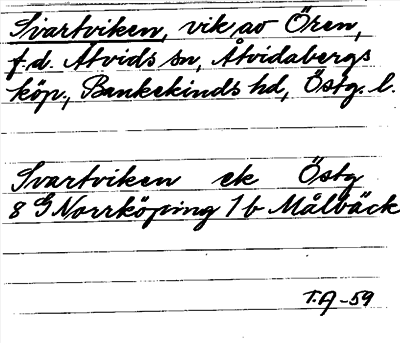 Svartviken, vik av Ören,
f.d. Åtvids sn, Åtvidabergs
köp., Bankekinds hd, Östg. l.
Svartviken ek Östg
8 G Norrköping 1 b Målbäck
T.A-59